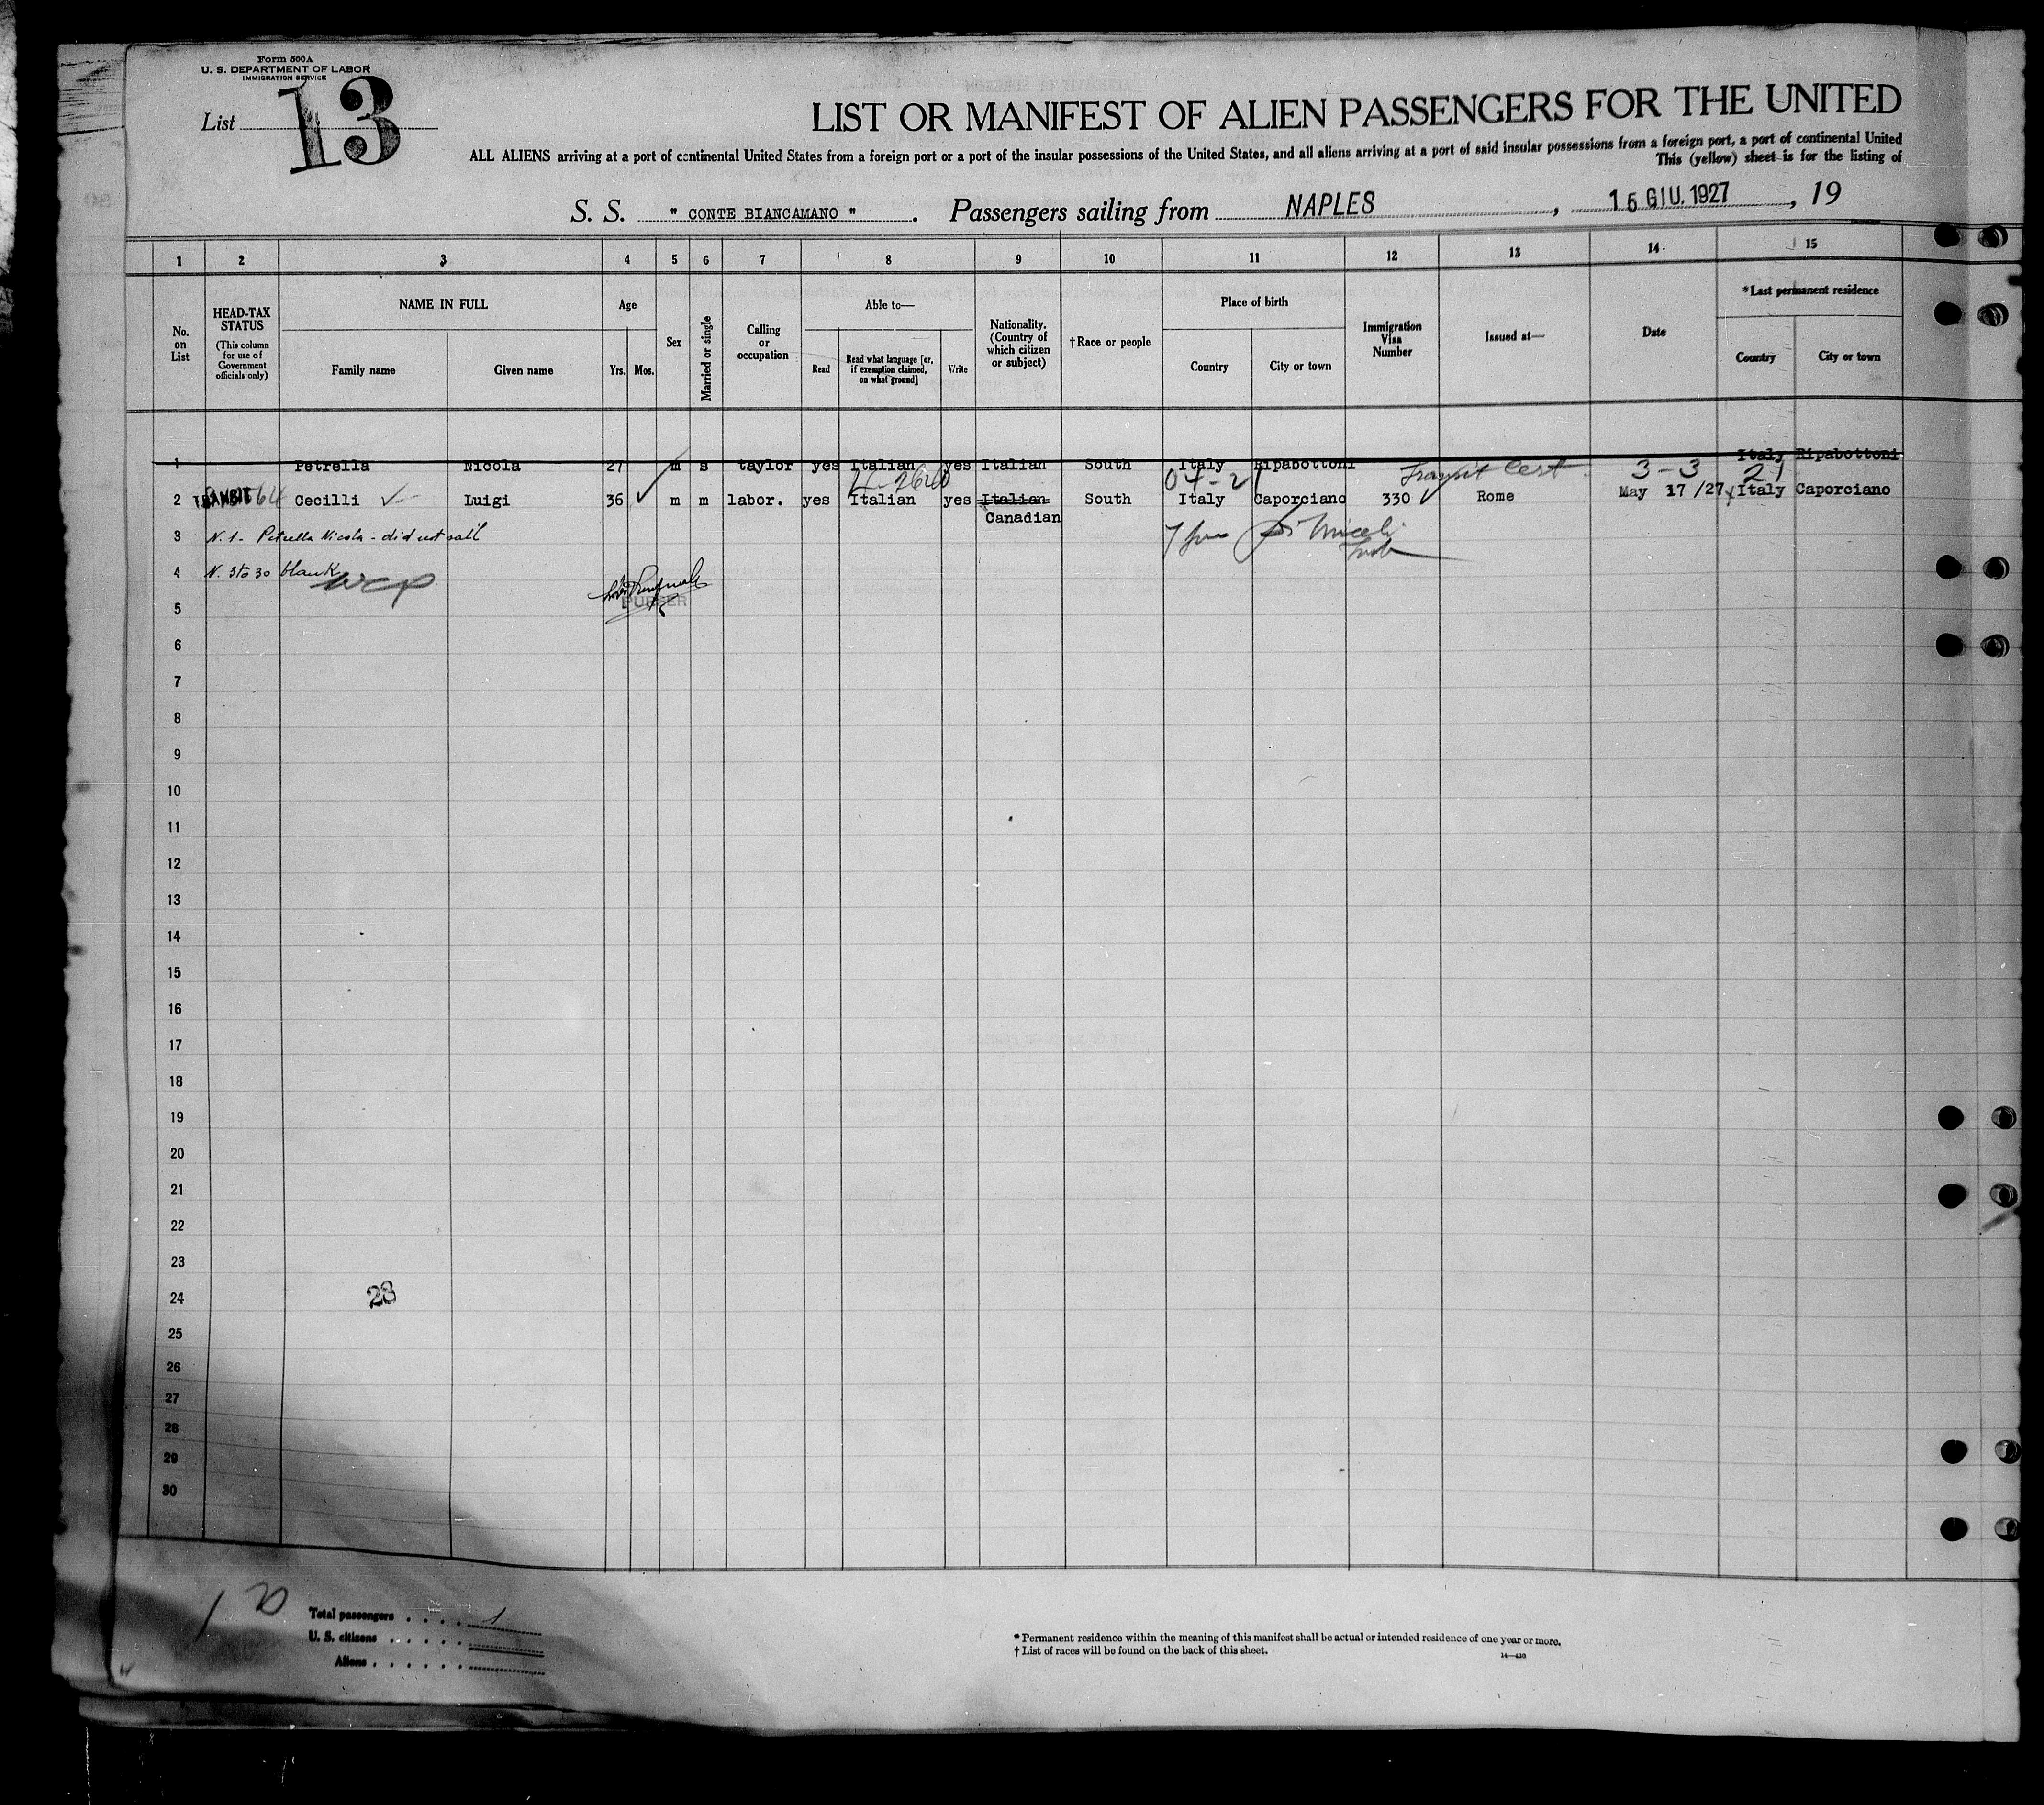 Form 500A
U. S. DEPARTMENT OF LABOR
IMMIGRATION SERVICE
List 13
LIST OR MANIFEST OF ALIEN PASSENGERS FOR THE UNITED
ALL ALIENS arriving at a port of continental United States from a foreign port or a port of the insular possessions of the United States, and all aliens arriving at a port of said insular possessions from a foreign port, a port of continental United
This (yellow) sheet is for the listing of
S. S. " CONTE BIANCAMANO " . Passengers sailing from NAPLES , 15 GIU. 1927 , 19
1 2 3 4 5 6 7 8 9 10 11 12 13 14 15
No. on List
HEAD-TAX STATUS
(This column for use of Government officials only)
NAME IN FULL
Family name Given name
Age
Yrs. Mos.
Sex
Married or single
Calling or occupation
Able to—
Read
Read what language [or, if exemption claimed, on what ground]
Write
Nationality. (Country of which citizen or subject)
† Race or people
Place of birth
Country City or town
Immigration Visa Number
Issued at—
Date
*Last permanent residence
Country City or town
1 Petrella Nicola 27 m s taylor yes Italian yes Italian South Italy Ripabottoni Italy Ripabottoni
04-21 Transit Cert. 3-3 21
2 TRANSIT Cecilli Luigi 36 m m labor. yes Italian yes Italian South Italy Caporciano 330 Rome May 17/27 Italy Caporciano
Canadian
3 N. 1 - Petrella Nicola - did not sail
4 N. 3 to 30 blank
PURSER
5
6
7
8
9
10
11
12
13
14
15
16
17
18
19
20
21
22
23
24 28
25
26
27
28
29
30
1 20
Total passengers . . . . 1
U. S. citizens . . . . .
Aliens . . . . . .
* Permanent residence within the meaning of this manifest shall be actual or intended residence of one year or more.
† List of races will be found on the back of this sheet.
14—430